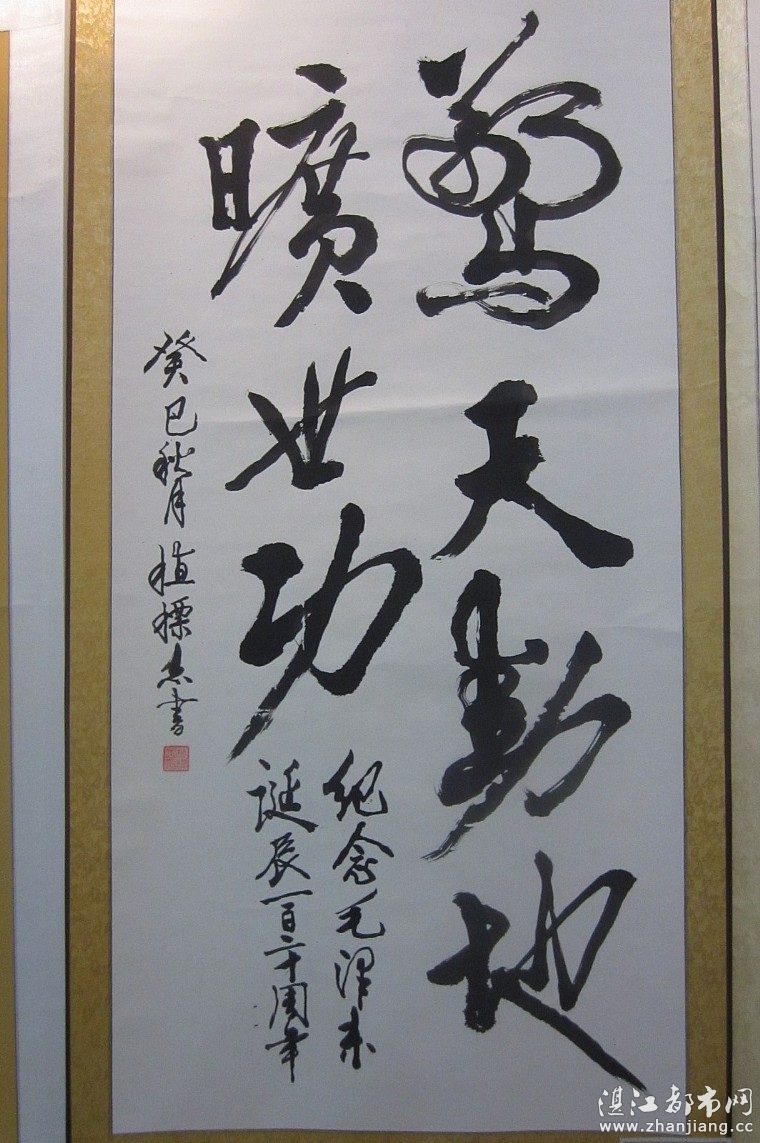 驚天動地
曠世功
紀念毛澤东
誕辰一百二十周年
癸巳秋月植標志書
湛江都市网
www.zhanjiang.cc